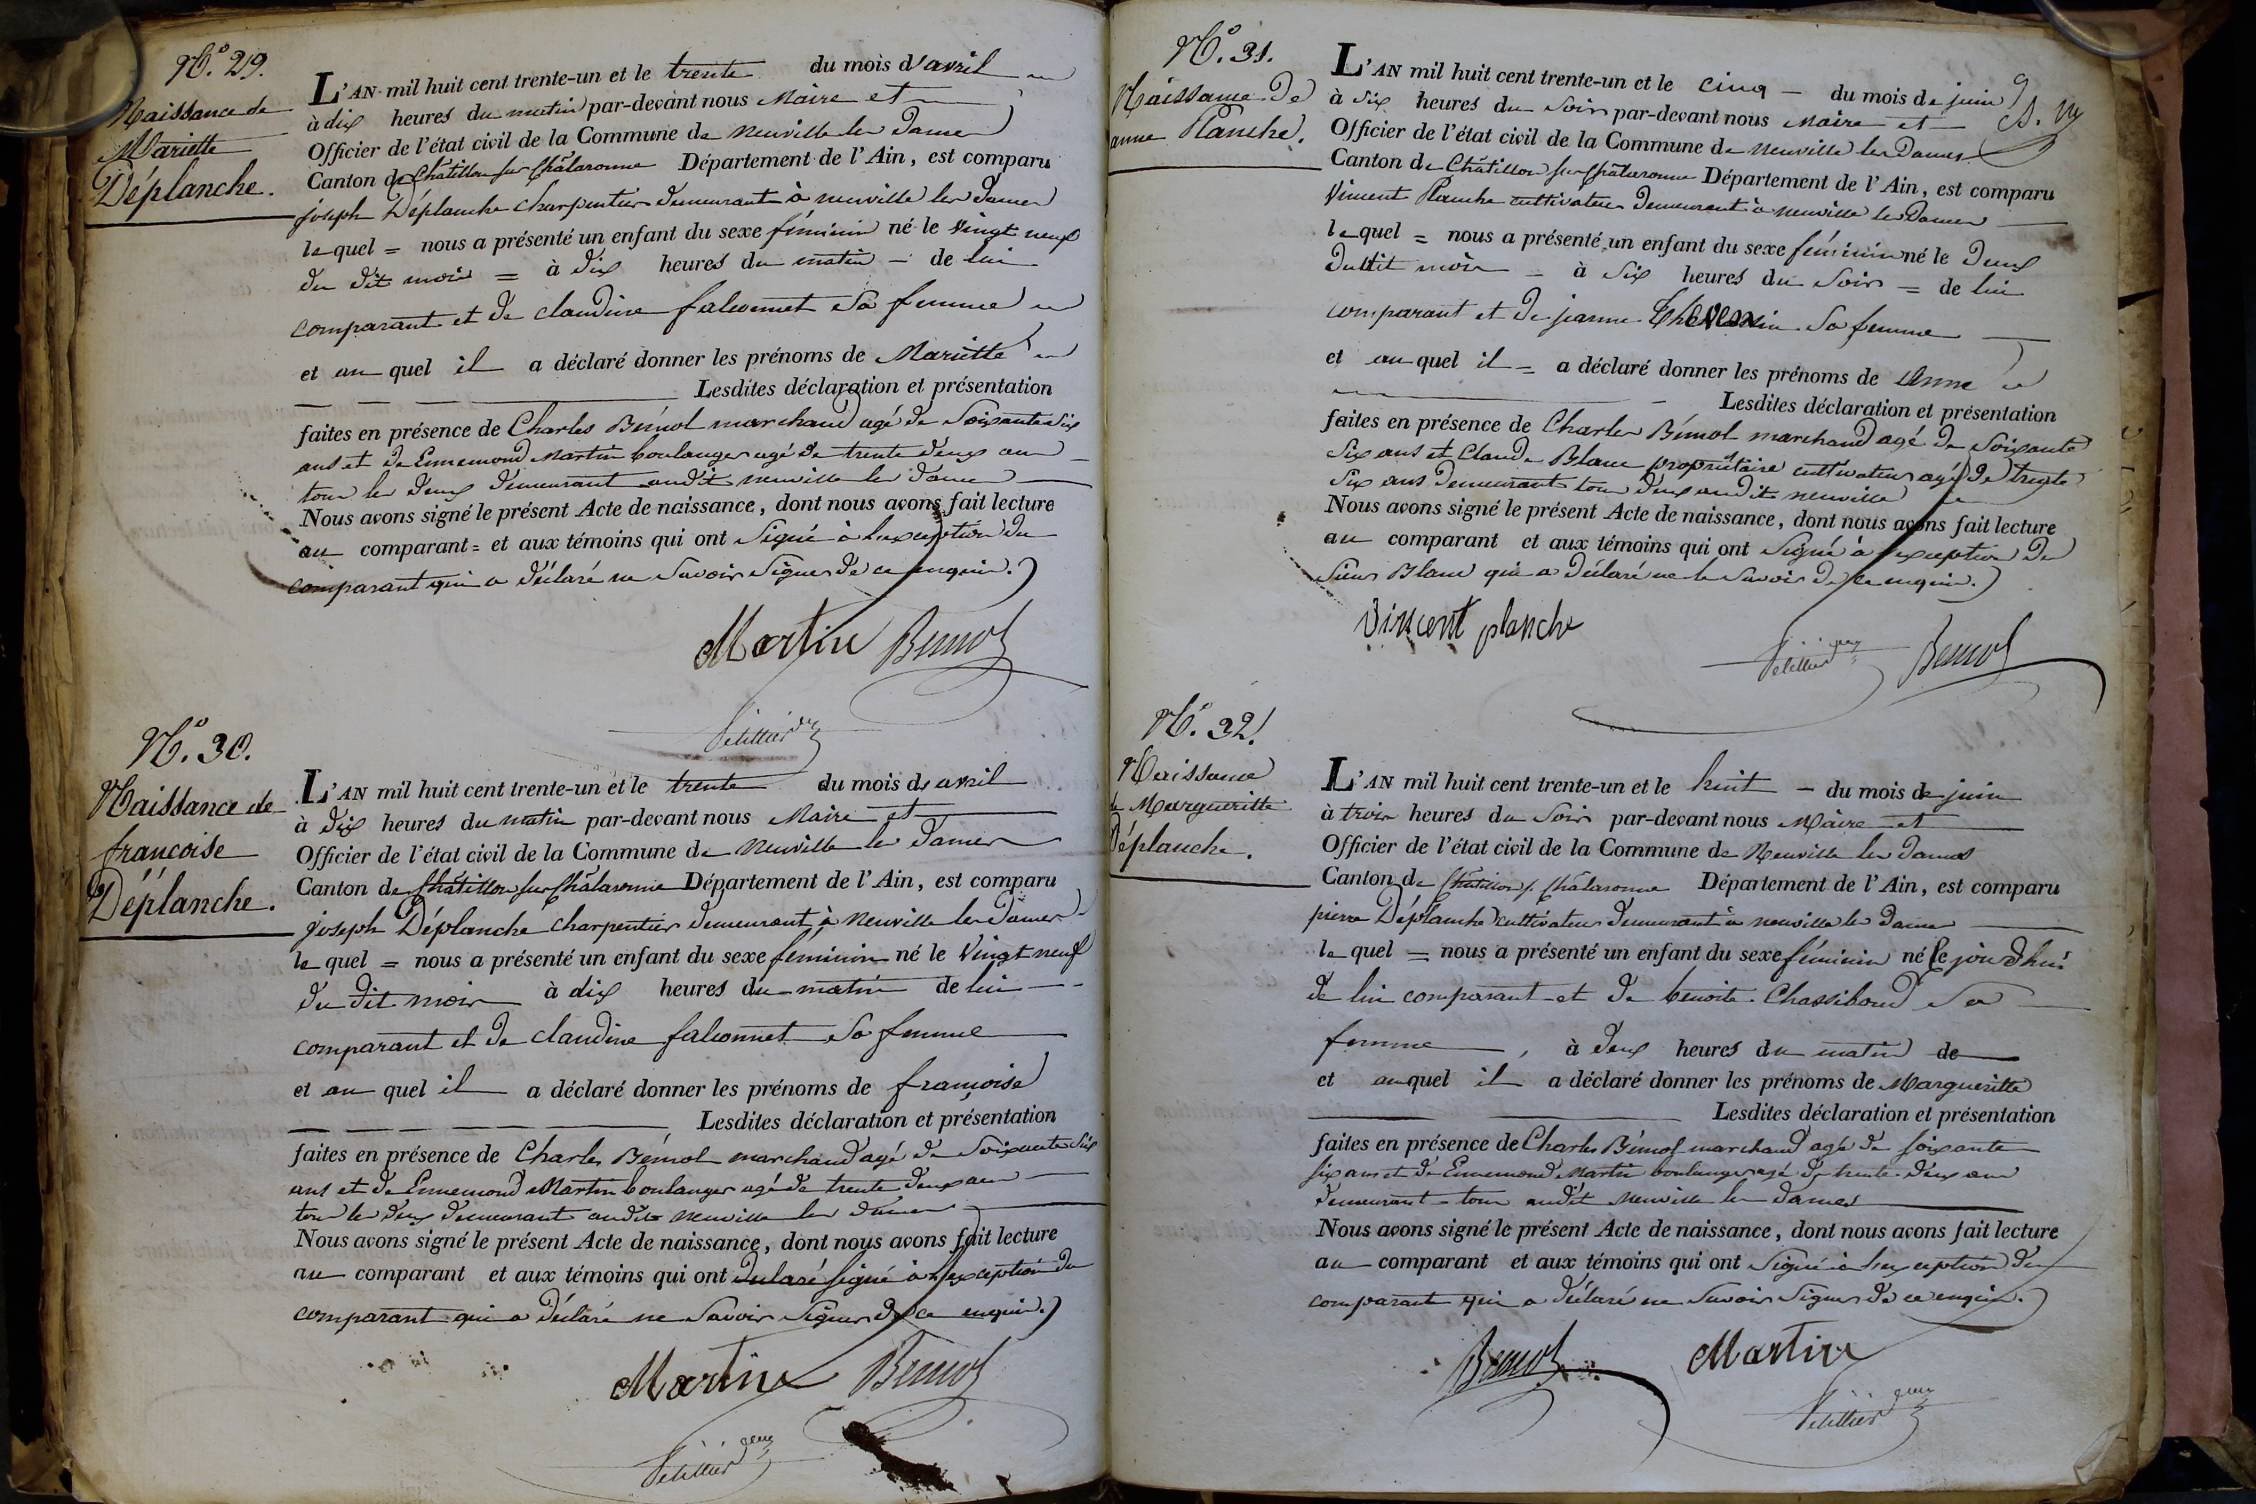 N.° 29.
Naissance de
Mariette
Déplanche.
L'AN mil huit cent trente-un et le trente du mois d'avril
à dix heures du matin par-devant nous Maire et
Officier de l'état civil de la Commune de Neuville les Dames
Canton de Châtillon sur Châlaronne Département de l'Ain, est comparu
joseph Déplanche charpentier demeurant à neuville les dames
lequel = nous a présenté un enfant du sexe féminin né le Vingt neuf
du dit mois = à dix heures du matin - de lui
comparant et de claudine falconnet sa femme
et au quel il a déclaré donner les prénoms de Mariette
Lesdites déclaration et présentation
faites en présence de Charles Bémol marchand agé de Soixante Six
ans et de Ennemond Martin boulanger agé de trente deux ans
tous les deux demeurant audit neuville les dames
Nous avons signé le présent Acte de naissance, dont nous avons fait lecture
au comparant = et aux témoins qui ont Signé à l'exception du
comparant qui a déclaré ne Savoir Signer de ce enquis.
Martin Bémol
Pelillier
N.° 30.
Naissance de
françoise
Déplanche.
L'AN mil huit cent trente-un et le trente du mois de avril
à dix heures du matin par-devant nous Maire et
Officier de l'état civil de la Commune de Neuville les dames
Canton de Châtillon sur Châlaronne Département de l'Ain, est comparu
joseph Déplanche charpentier demeurant à Neuville les dames
lequel = nous a présenté un enfant du sexe féminin né le Vingt neuf
du dit mois à dix heures du matin de lui
comparant et de claudine falconnet sa femme
et au quel il a déclaré donner les prénoms de françoise
Lesdites déclaration et présentation
faites en présence de Charles Bémol marchand agé de Soixante Six
ans et de Ennemond Martin boulanger agé de trente deux ans
tous les deux demeurant audit neuville les dames
Nous avons signé le présent Acte de naissance, dont nous avons fait lecture
au comparant et aux témoins qui ont déclaré signé à l'exception du
comparant qui a déclaré ne Savoir Signer de ce enquis.
Martin Bémol
Pelillier
N.° 31.
Naissance De
anne Planche.
L'AN mil huit cent trente-un et le cinq - du mois de juin
à six heures du Soir par-devant nous Maire et
Officier de l'état civil de la Commune de Neuville les Dames
Canton de Châtillon sur Châlaronne Département de l'Ain, est comparu
Vincent Planche cultivateur Demeurant à neuville les Dames
lequel = nous a présenté un enfant du sexe féminin né le Deux
Dudit mois - à Six heures du Soir = de lui
comparant et de jeanne Thevenin Sa femme
et au quel il = a déclaré donner les prénoms de Anne
Lesdites déclaration et présentation
faites en présence de Charles Bémol marchand agé de Soixante
Six ans et Claude Blanc propriétaire cultivateur agé de trente
Six ans Demeurant tous deux audit neuville
Nous avons signé le présent Acte de naissance, dont nous avons fait lecture
au comparant et aux témoins qui ont Signé à exception de
Sieur Blanc qui a Déclaré ne le Savoir De ce enquis.
Vinscent planche
Pelillier Bémol
N.° 32.
Naissance
de Margueritte
Déplanche.
L'AN mil huit cent trente-un et le huit - du mois de juin
à trois heures du Soir par-devant nous Maire et
Officier de l'état civil de la Commune de Neuville les Dames
Canton de Châtillon s. Châlaronne Département de l'Ain, est comparu
pierre Déplanche cultivateur demeurant à neuville les dames
lequel = nous a présenté un enfant du sexe féminin né ce jourd'hui
de lui comparant et de benoite Chassiboud Sa
femme, à deux heures du matin de
et auquel il a déclaré donner les prénoms de Margueritte
Lesdites déclaration et présentation
faites en présence de Charles Bémol marchand agé de soixante
six ans et de Ennemond Martin boulanger agé de trente deux ans
demeurant tous audit Neuville les dames
Nous avons signé le présent Acte de naissance, dont nous avons fait lecture
au comparant et aux témoins qui ont Signé à l'exception du
comparant qui a déclaré ne Savoir Signer de ce enquis.
Bémol Martin
Pelillier